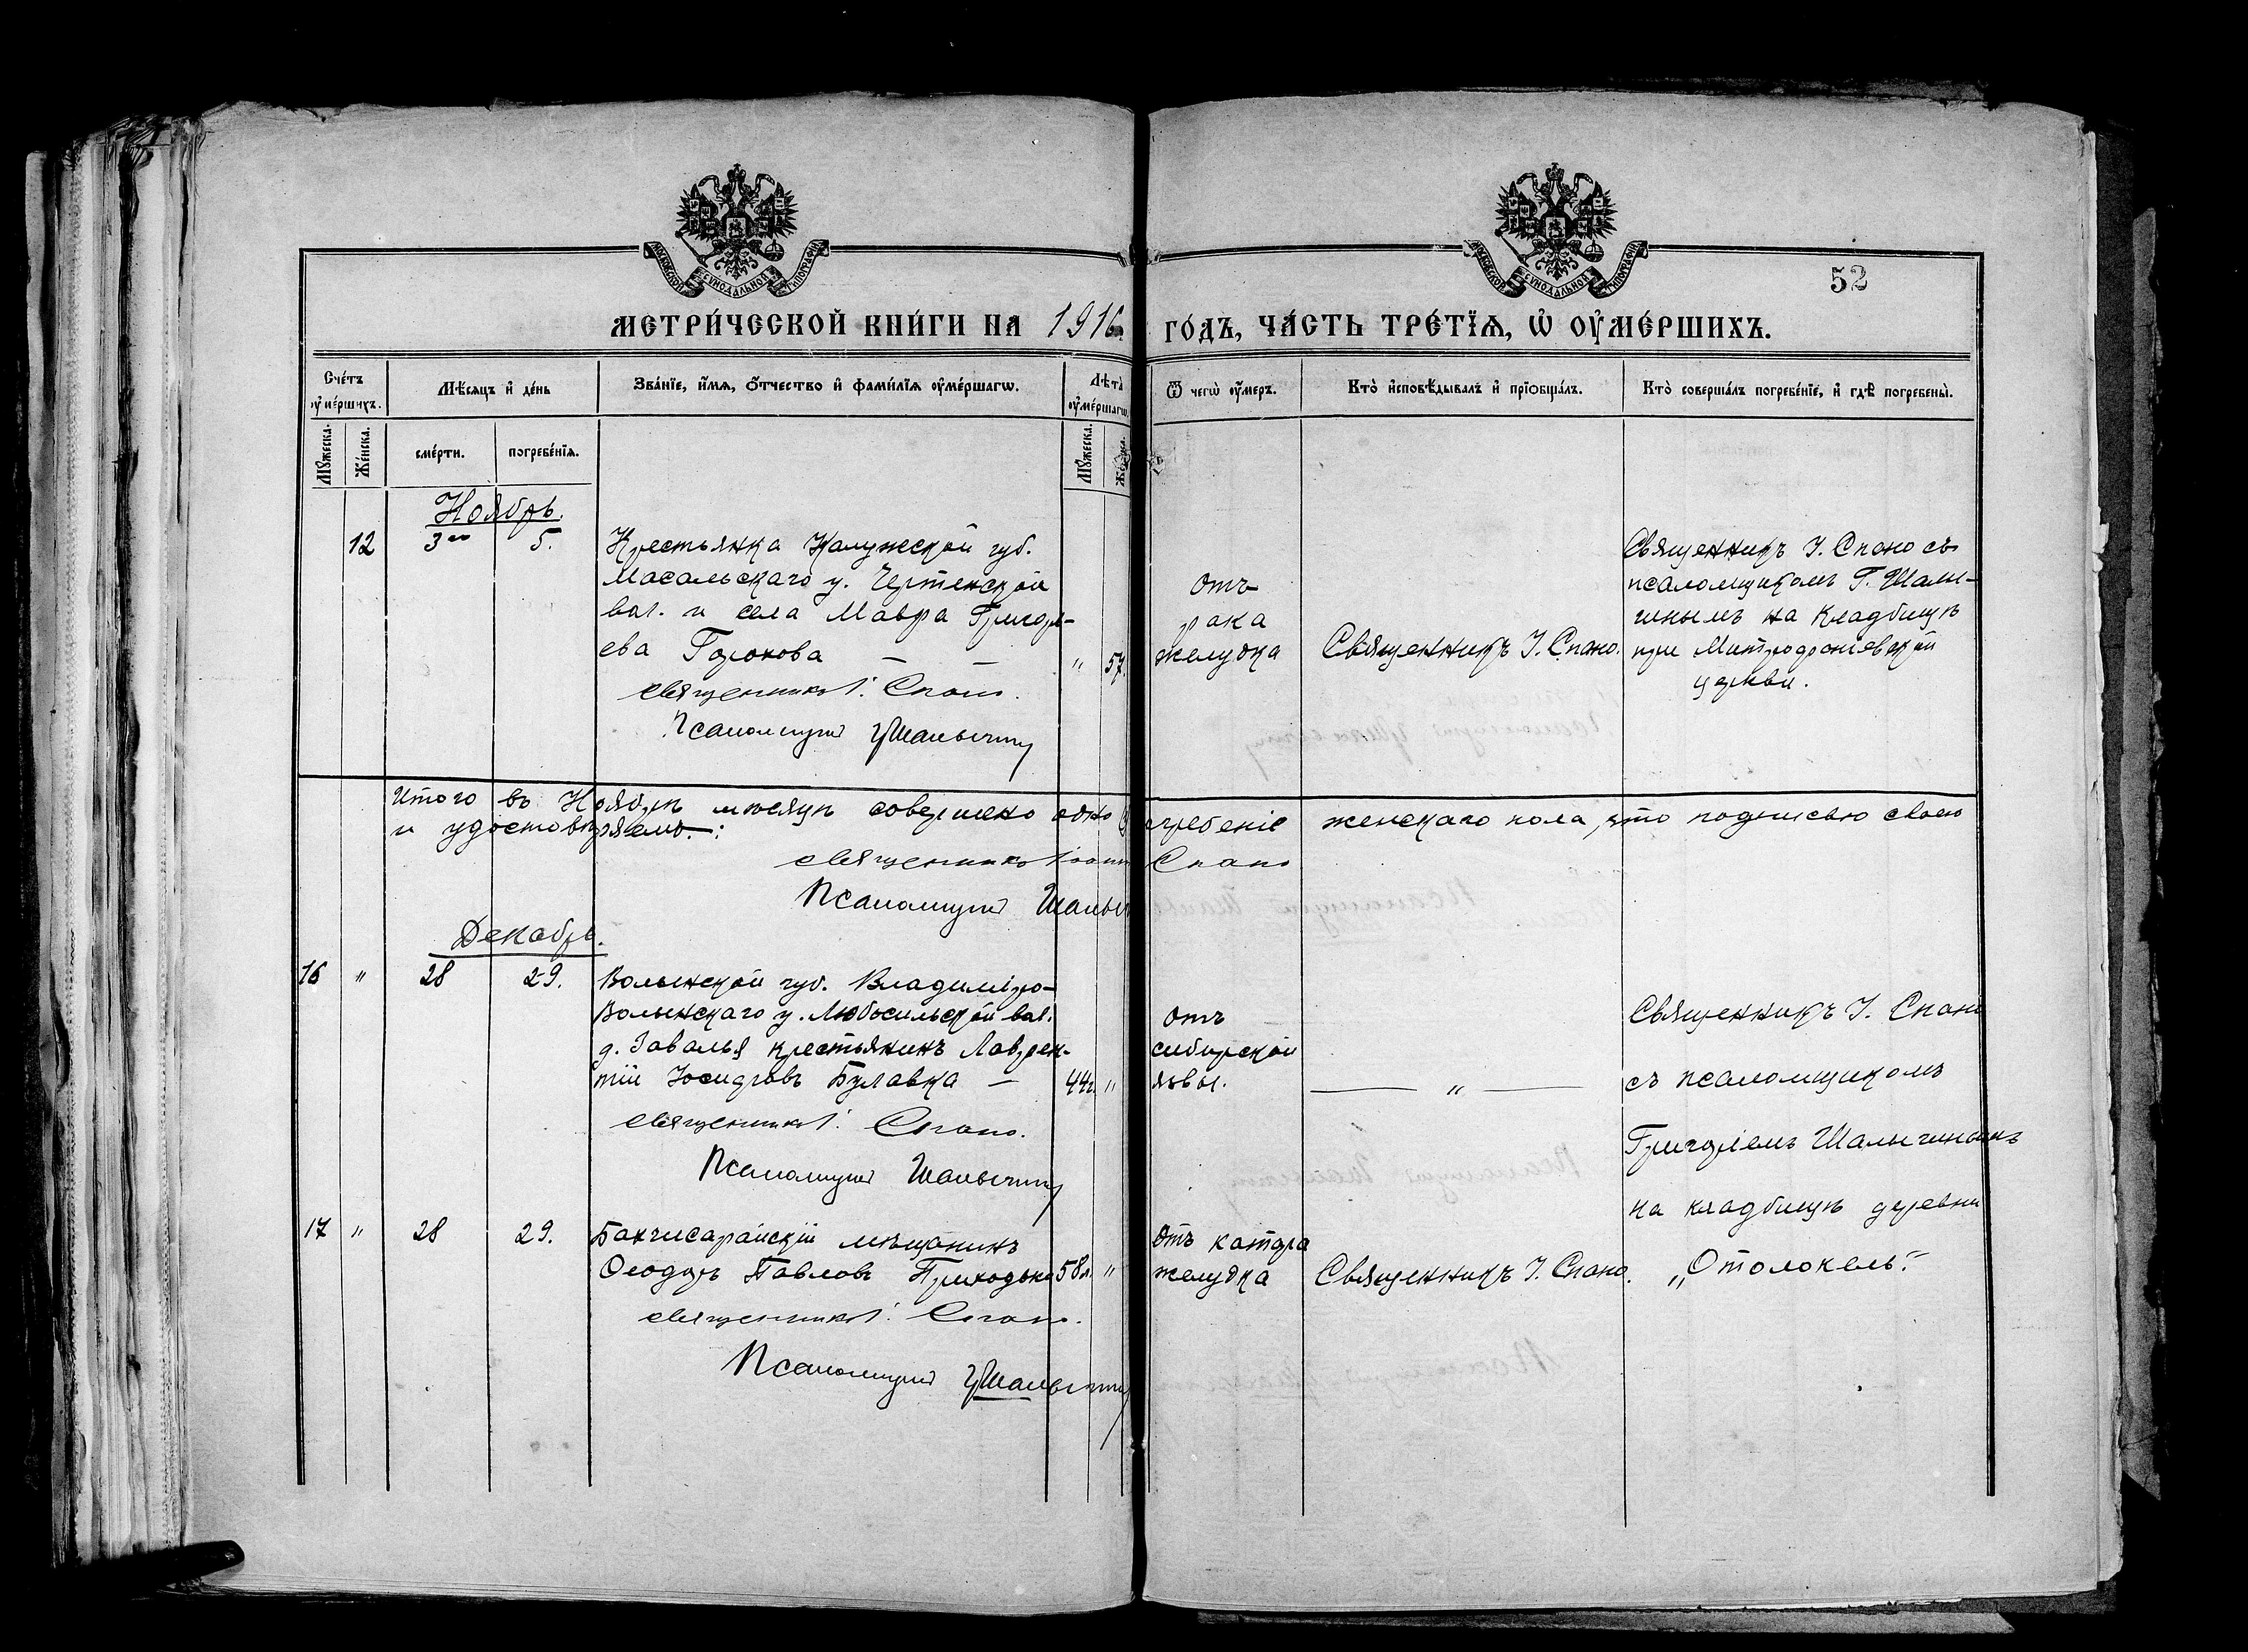 52
МЕТРИ́ЧЕСКОЙ КНИ́ГИ НА 1916 ГО́ДЪ, ЧА́СТЬ ТРЕ́ТЇѦ, Ѽ ОУ҆МЕ́РШИХЪ.
Сче́тъ оу҆ме́ршихъ.
Мѣ́сяцъ и҆ де́нь
Зва́нїе, и҆́мѧ, ѻ҆́тчество и҆ фами́лїѧ оу҆ме́ршагѡ.
Лѣ́та оу҆ме́ршагѡ.
Ѿ чегѡ̀ оу҆́меръ.
Кто̀ и҆сповѣ́дывалъ и҆ прїѡбща́лъ.
Кто̀ соверша́лъ погребе́нїе, и҆ гдѣ̀ погребены̀.
Мꙋ́жеска.
Же́нска.
сме́рти.
погребе́нїѧ.
Мꙋ́жеска.
Ноябрь.
12 3го 5.
Крестьянка Калужской губ.
Масальскаго у. Чертенской
вол. и села Мавра Григорь-
ева Горохова — —
" 57.
священникъ І. Спано.
Псаломщикъ Г Шалыгинъ
отъ
рака
желудка
Священникъ І. Спано.
Священникъ І. Спано съ
псаломщикомъ Г. Шалы-
гинымъ на кладбищѣ
при Митрофаніевской
церкви.
Итого въ Ноябрѣ мѣсяцѣ совершено одно погребеніе женскаго пола, что подписью своею
и удостовѣряемъ:
священникъ Іоаннъ Спано
Псаломщикъ Шалыг
Декабрь.
16 " 28 29.
Волынской губ. Владиміро-
Волынскаго у. Любосильской вол.
д. Заволья крестьянинъ Лаврен-
тій Іосифовъ Булавка —
44г. "
священникъ І. Спано.
Псаломщикъ Шалыгинъ
отъ
сибирской
язвы.
— " —
Священникъ І. Спано
съ псаломщикомъ
Григоріемъ Шалыгинымъ
на кладбищѣ деревни
„Отолокель."
17 " 28 29.
Бахчисарайскій мѣщанинъ
Ѳеодоръ Павловъ Приходько
58л. "
священникъ І. Спано.
Псаломщикъ Г Шалыгинъ
Отъ катара
желудка
Священникъ І. Спано.